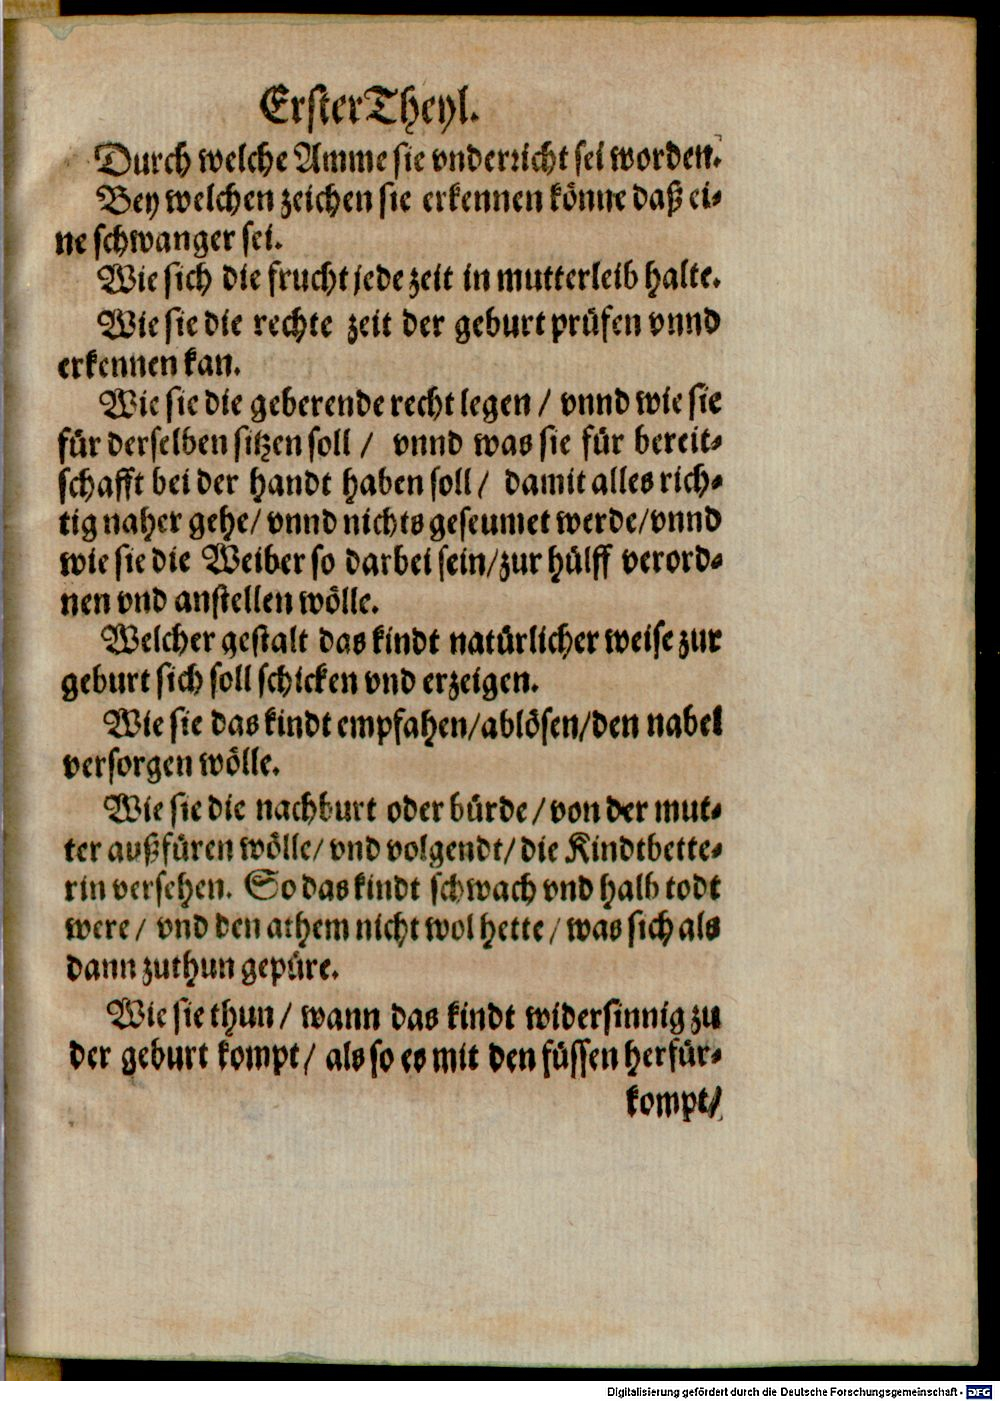 Erster Theyl.
Durch welche Amme sie vnderricht sei worden.
Bey welchen zeichen sie erkennen könne daß ei-
ne schwanger sei.
Wie sich die frucht jede zeit in mutterleib halte.
Wie sie die rechte zeit der geburt prüfen vnnd
erkennen kan.
Wie sie die geberende recht legen / vnnd wie sie
für derselben sitzen soll / vnnd was sie für bereit-
schafft bei der handt haben soll / damit alles rich-
tig naher gehe / vnnd nichts geseumet werde / vnnd
wie sie die Weiber so darbei sein / zur hülff verord-
nen vnd anstellen wölle.
Welcher gestalt das kindt natürlicher weise zur
geburt sich soll schicken vnd erzeigen.
Wie sie das kindt empfahen / ablösen / den nabel
versorgen wölle.
Wie sie die nachburt oder bürde / von der mut-
ter außfüren wölle / vnd volgendt / die Kindtbette-
rin versehen. So das kindt schwach vnd halb todt
were / vnd den athem nicht wol hette / was sich als
dann zuthun gepüre.
Wie sie thun / wann das kindt widersinnig zu
der geburt kompt / als so es mit den füssen herfür-
kompt /
Digitalisierung gefördert durch die Deutsche Forschungsgemeinschaft - DFG